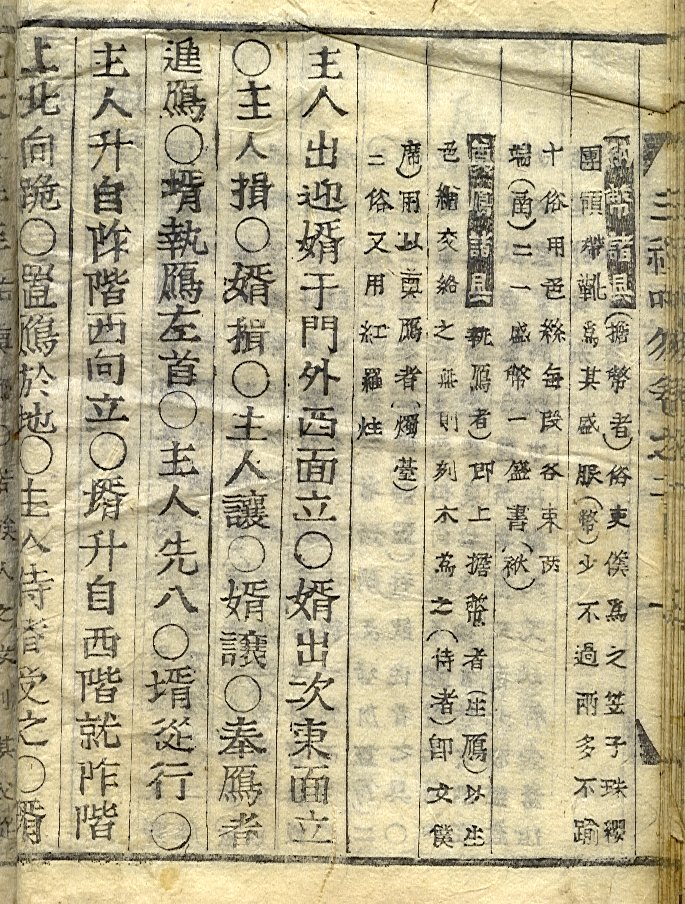 三禮 笏卷之二
納幣諸具(擔幣者)俗吏僕爲之笠子珠纓
團領帶靴爲其盛服(幣)少不過兩多不踰
十俗用色絲每段各束兩
端(函)二一盛幣一盛書(袱)
奠鴈諸具執鴈者)即上擔幣者(生鴈)以生
色繒交絡之無則刻木爲之(侍者)卽女僕
席)用以奠鴈者(燭臺)
二俗又用紅羅炷
主人出迎婿于門外西面立○婿出次東面立
○主人揖○婿揖○主人讓○婿讓○奉鴈者
進鴈○壻執鴈左首○主人先入○壻從行○
主人升自阼階西向立○壻升自西階就阼階
上北向跪○置鴈於地○主人侍者受之○壻